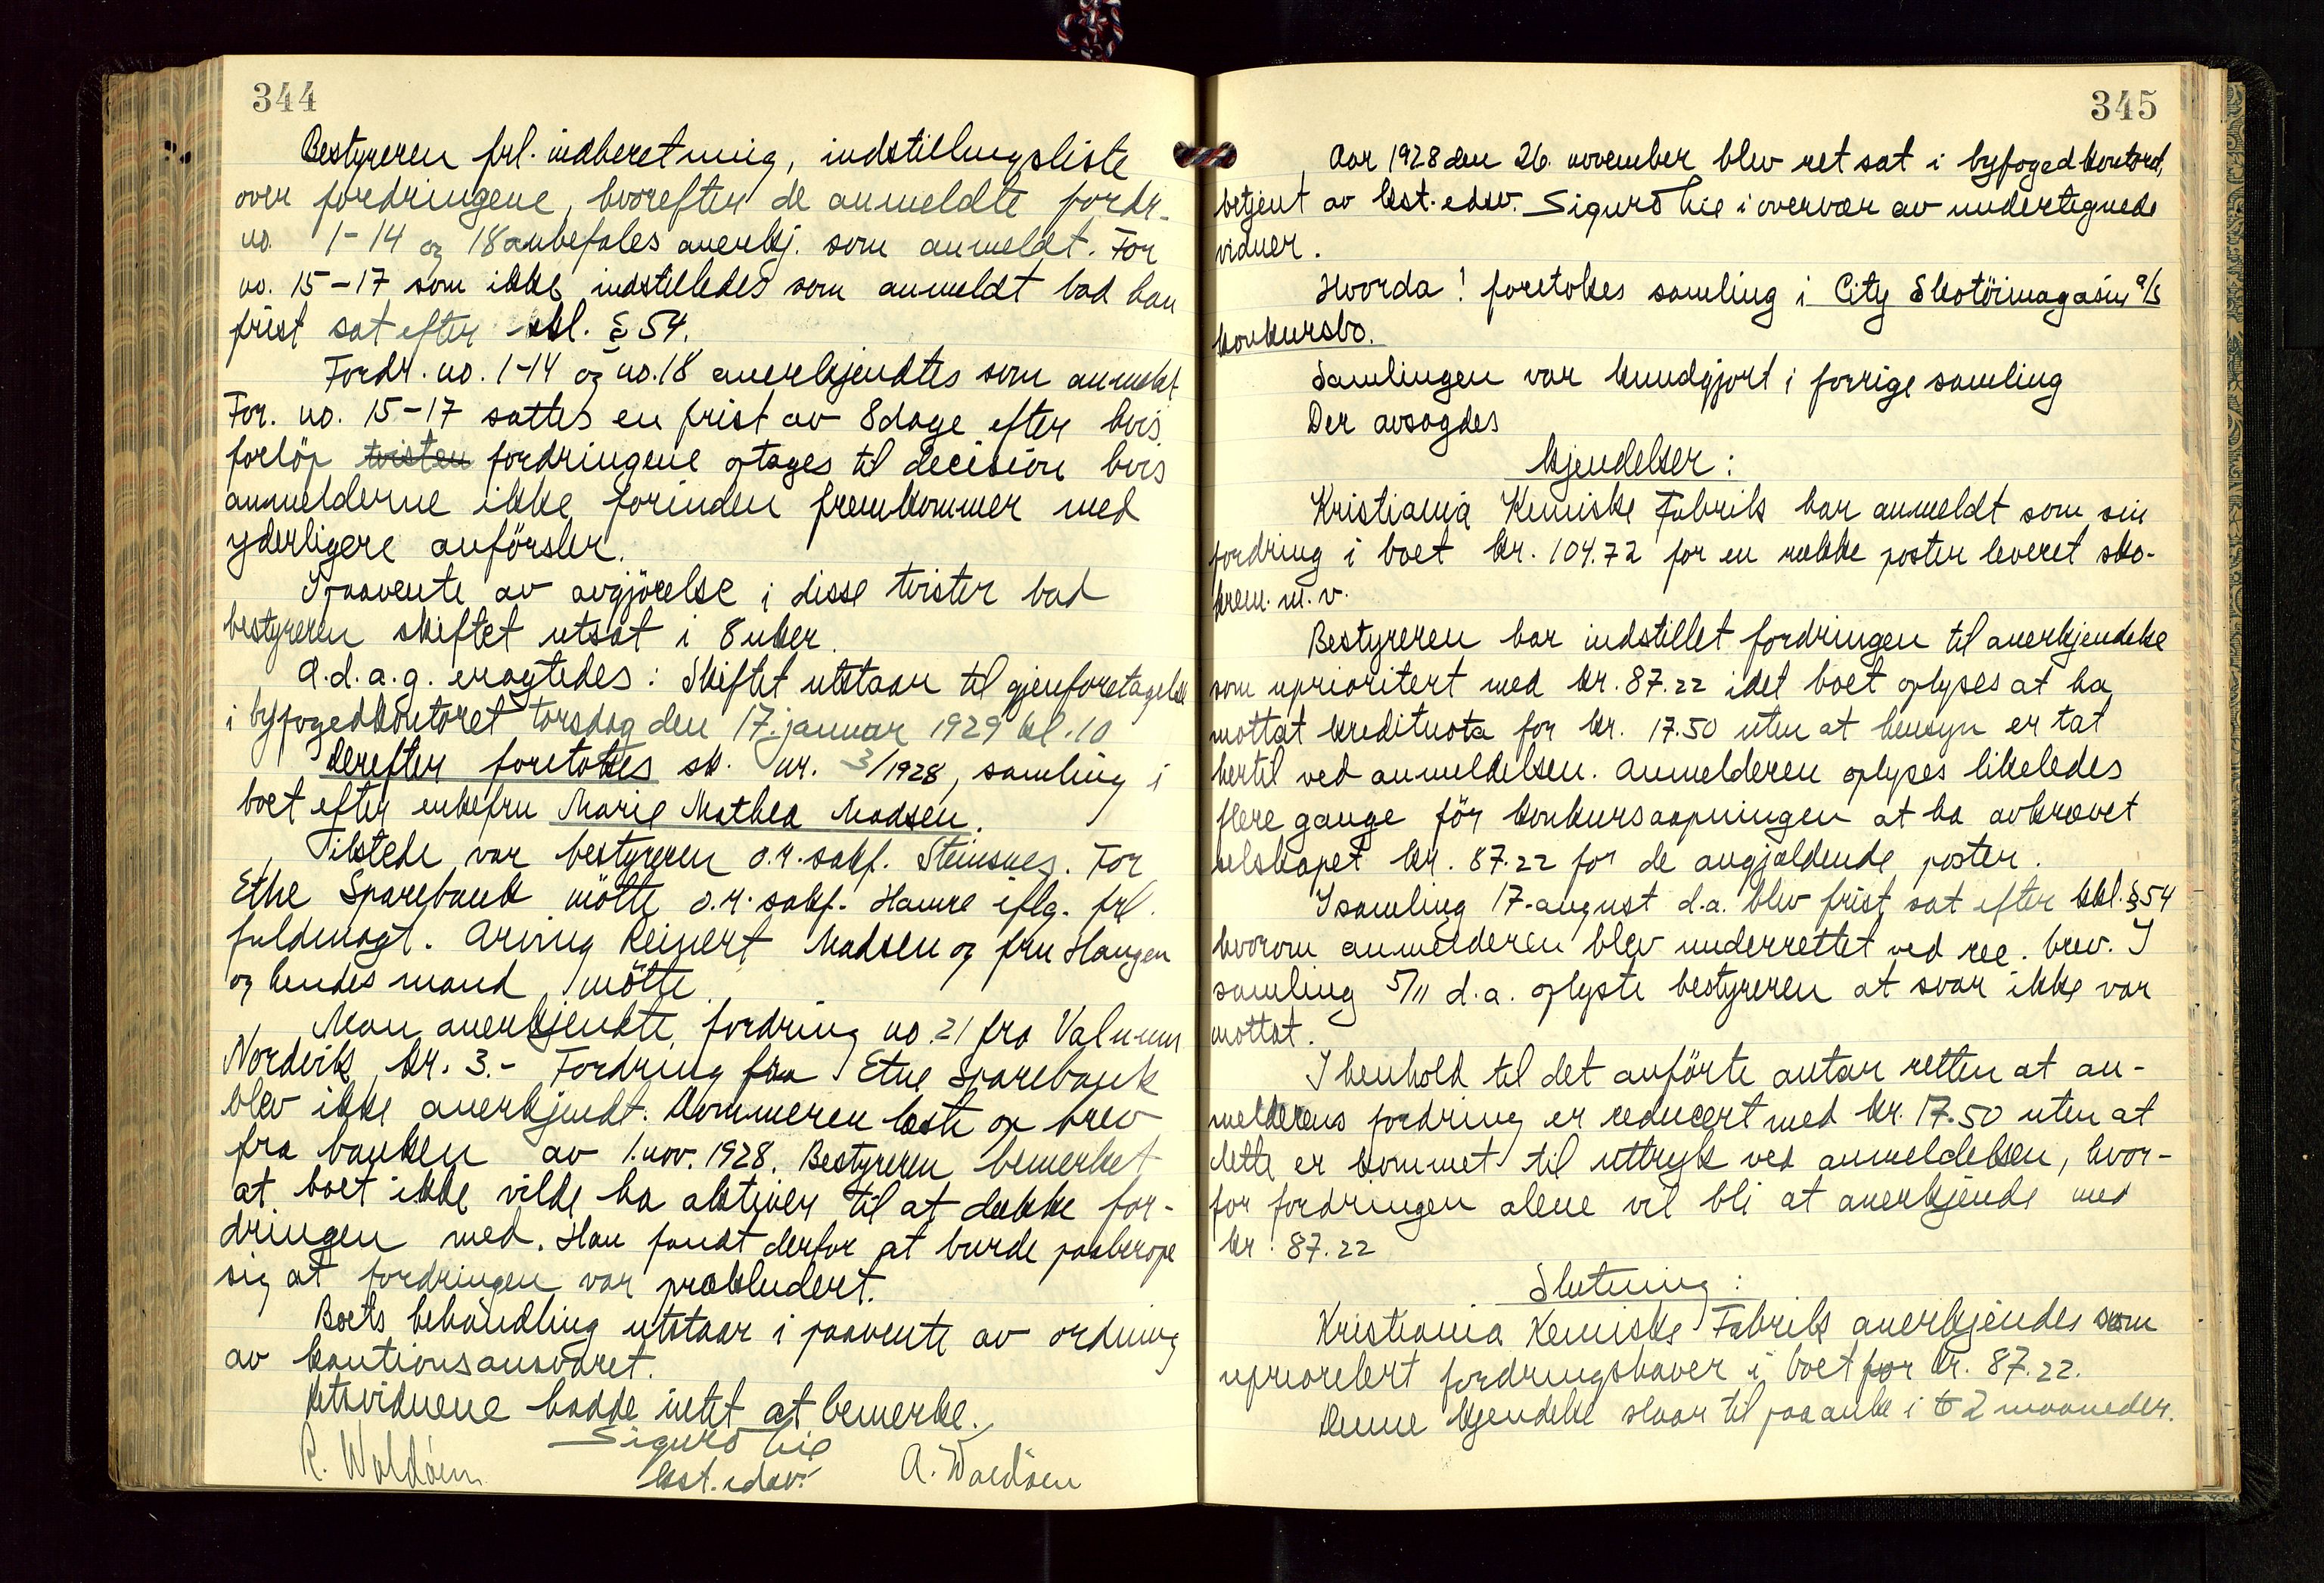 344
Bestyreren frl. indberetning, indstillingsliste
over fordringene, hvorefter de anmeldte fordr.
no. 1-14 og 18 anbefales anerkj. som anmeldt. For
no. 15-17 som ikke indstilledes som anmeldt bad han
frist sat efter kkl. § 54.
Fordr. no. 1-14 og no. 18 anerkjendtes som anmeldt
For. no. 15-17 sattes en frist av 8 dage efter hvis
forløp tvisten fordringene optages til decision hvis
anmelderne ikke forinden fremkommer med
yderligere anförsler.
I paavente av avgjörelse i disse tvister bad
bestyreren skiftet utsat i 8 uker.
A.d.a.g. eragtedes: Skiftet utstaar til gjenforetagelse
i byfogedkontoret torsdag den 17. januar 1929 kl. 10
Derefter foretokes sk. nr. 3/1928, samling i
boet efter enkefru Marie Mathea Madsen.
Tilstede var bestyreren o.r.sakf. Steinsnes. For
Etne Sparebank mötte o.r.sakf. Hamre iflg. frl.
fuldmagt. Arving Reinert Madsen og fru Haugen
og hendes mand mötte.
Man anerkjendte fordring no. 21 fra
Nordvik, kr. 3.- Fordring fra Etne Sparebank
blev ikke anerkjendt. Dommeren læste op brev
fra banken av 1. nov. 1928. Bestyreren bemerket
at boet ikke vilde ha aktiver til at dække for-
dringen med. Han fandt derfor at burde paaberope
sig at fordringen var prækludert.
Boets behandling utstaar i paavente av ordning
av kautionsansvaret.
Retsvidnene hadde intet at bemerke.
Sigurd Lie
R. Waldøen kst. edsv. A. Waldøen
345
Aar 1928 den 26. november blev ret sat i byfogedkontoret,
betjent av kst. edsv. Sigurd Lie i overvær av undertegnede
vidner.
Hvorda! foretokes samling i City Skotöimagasin a/s
konkursbo.
Samlingen var kundgjort i forrige samling
Der avsagdes
Kjendelser:
Kristiania Kemiske Fabrik har anmeldt som sin
fordring i boet kr. 104.72 for en række poster leveret sko-
krem m. v.
Bestyreren har indstillet fordringen til anerkjendelse
som uprioritert med kr. 87.22 idet boet oplyses at ha
mottat kreditnota for kr. 17.50 uten at hensyn er tat
hertil ved anmeldelsen. Anmelderen oplyses likeledes
flere gange för konkursaapningen at ha avkrævet
selskapet kr. 87.22 for de angjældende poster.
I samling 17. august d.a. blev frist sat efter kkl. § 54
hvorom anmelderen blev underrettet ved rec. brev. I
samling 5/11 d.a. oplyste bestyreren at svar ikke var
mottat.
I henhold til det anförte antar retten at an-
melderens fordring er reducert med kr. 17.50 uten at
dette er kommet til uttryk ved anmeldelsen, hvor-
for fordringen alene vil bli at anerkjende med
kr. 87.22
Slutning:
Kristiania Kemiske Fabrik anerkjendes som
uprioritert fordringshaver i boet for kr. 87.22.
Denne kjendelse staar til paaanke i 2 maaneder.